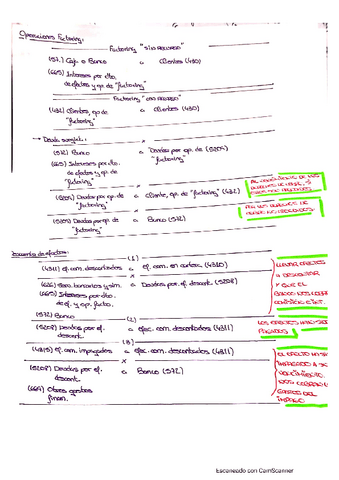 Operaciones Factoring:
Factoring "SIN RECURSO"
(57.) Caja o Banco a Clientes (430)
(665) Intereses por dto.
de efectos y op. de "factoring"
Factoring "CON RECURSO"
(432) Clientes, op. de a Clientes (430)
"factoring"
→ Deuda
(572) Banco a Deudas por op. de (5209)
(665) Intereses por dto. "factoring"
de efectos y op. de
"factoring"
(5209) Deudas por op. de a Cliente, op. de "factoring" (432)
"factoring"
(5209) Deudas por op. de a Banco (572)
"factoring"
Descuento de efectos:
(1)
(4311) ef. com. descontados a ef. com. en cartera (4310)
(626) Serv. bancarios y sim. a Deudas por ef. descont. (5208)
(665) Intereses por dto.
de ef. y op. facto.
(572) Banco
(2)
(5208) Deudas por ef. a efec. com. descontados (4311)
descont.
(3)
(4315) ef. com. impagados a efec. com. descontados (4311)
(5208) Deudas por ef. a Banco (572)
descont.
(669) Otros gastos
finan.
LLEVAR EFECTOS
A DESCONTAR
Y QUE EL
BANCO NOS
LOS EFECTOS HAN SIDO
PAGADOS
EL EFECTO HA SIDO
IMPAGADO A SU
VENCIMIENTO.
NOS COBRAN
GASTOS DEL
IMPAGO
Escaneado con CamScanner